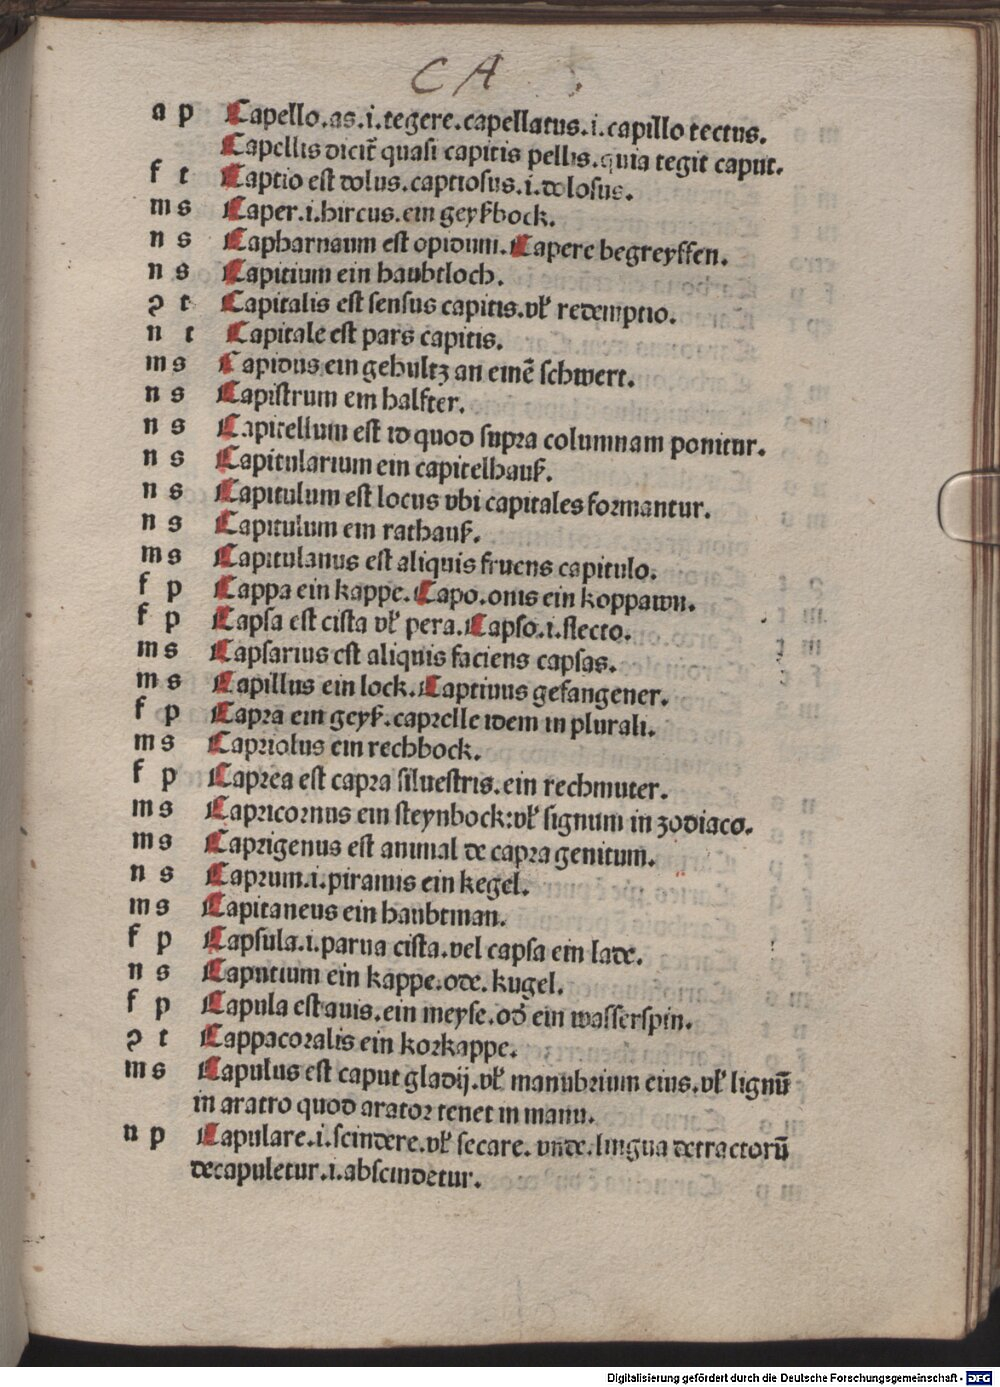 CA
a p Capello.as.i.tegere.capellatus.i.capillo tectus.
Capellis dicit̃ quasi capitis pellis.quia tegit caput.
f t Captio est dolus.captiosus.i.dolosus.
m s Caper.i.hircus.ein geyßbock.
n s Capharnaum est opidum.Capere begreyffen.
n s Capitium ein haubtloch.
ꝯ t Capitalis est sensus capitis.vel̛ redemptio.
n t Capitale est pars capitis.
m s Capidus ein gehultz an einē schwert.
n s Capistrum ein halfter.
n s Capitellum est id quod supra columnam ponitur.
n s Capitularium ein capitelhauß.
n s Capitulum est locus vbi capitales formantur.
n s Capitulum ein rathauß.
m s Capitulanus est aliquis fruens capitulo.
f p Cappa ein kappe.Capo.onis ein koppawn.
f p Capsa est cista vel̛ pera.Capso.i.flecto.
m s Capsarius est aliquis faciens capsas.
m s Capillus ein lock.Captiuus gefangener.
f p Capra ein geyß.caprelle idem in plurali.
m s Capriolus ein rechbock.
f p Caprea est capra siluestris.ein rechmuter.
m s Capricornus ein steynbock:vel̛ signum in zodiaco.
m s Caprigenus est animal de capra genitum.
n s Caprum.i.piramis ein kegel.
m s Capitaneus ein haubtman.
f p Capsula.i.parua cista.vel capsa ein lade.
n s Caputium ein kappe.ode. kugel.
f p Capula est auis.ein meyse.od̛ ein wasserspin.
ꝯ t Cappacoralis ein korkappe.
m s Capulus est caput gladij.vel̛ manubrium eius.vel̛ lignū
in aratro quod arator tenet in manu.
n p Capulare.i.scindere.vel̛ secare. vnde.lingua detractorū
decapuletur.i.abscindetur.
Digitalisierung gefördert durch die Deutsche Forschungsgemeinschaft - DFG